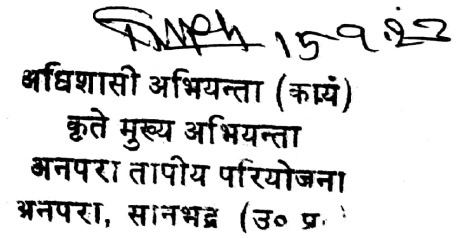 15.9.22
अधिशासी अभियन्ता (कार्य)
कृते मुख्य अभियन्ता
अनपरा तापीय परियोजना
अनपरा, सानभद्र (उ० प्र.